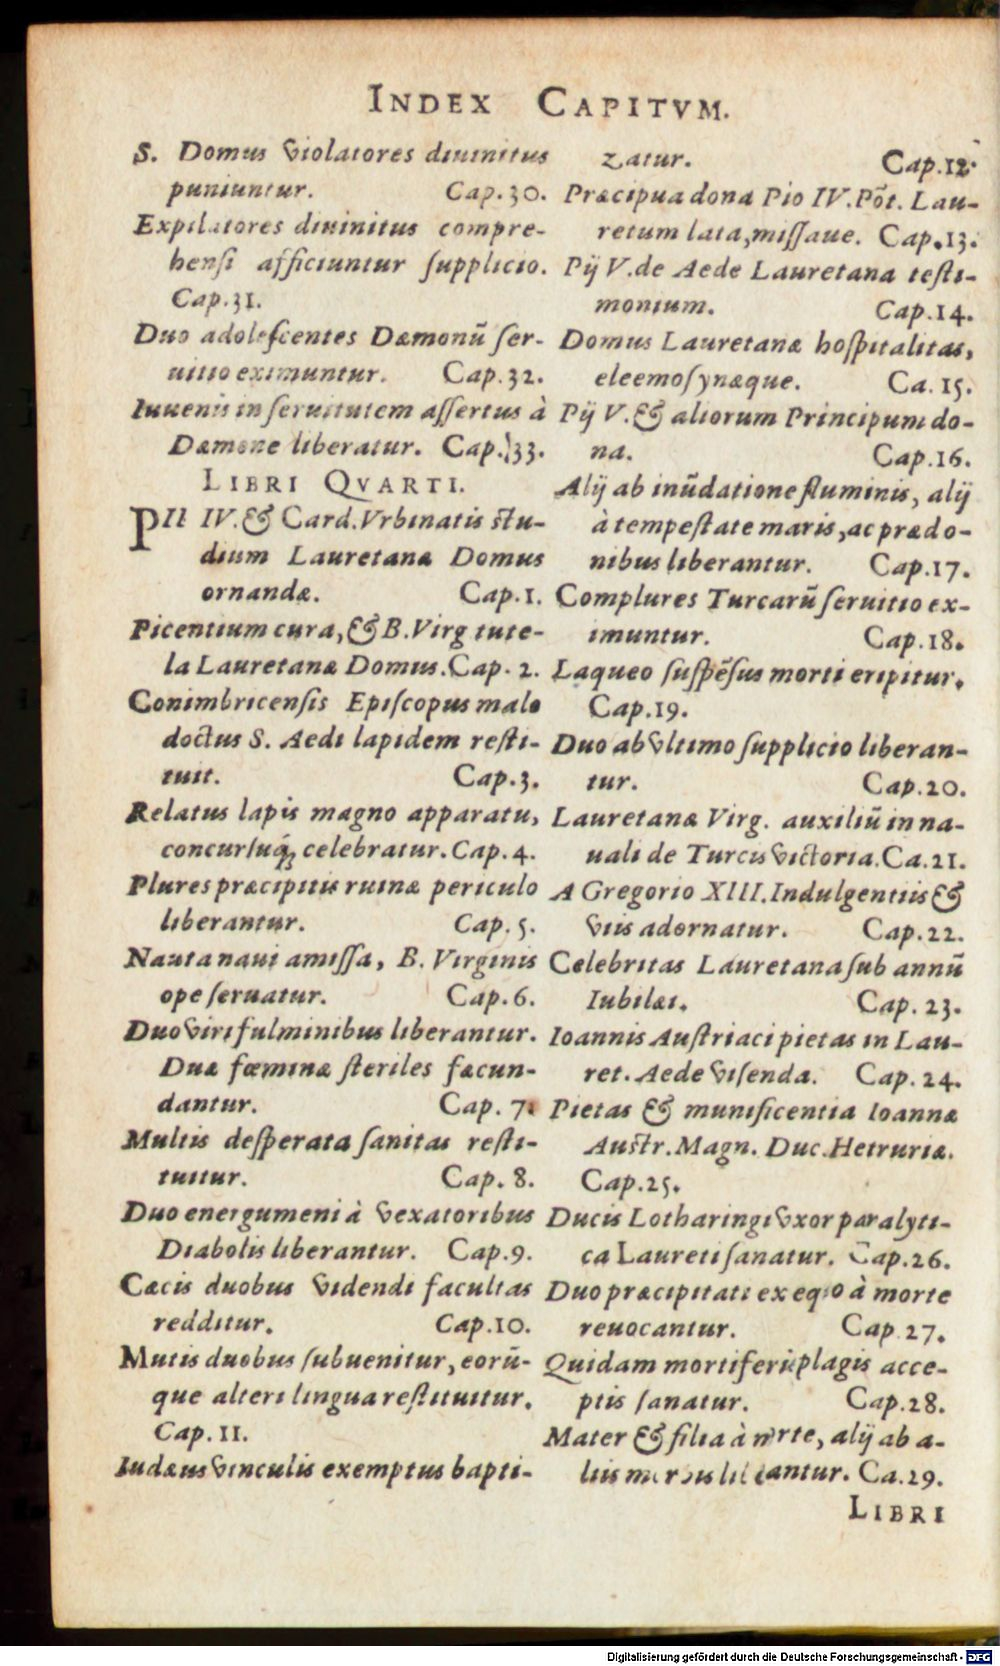 INDEX CAPITVM.
S. Domus violatores diuinitus
puniuntur. Cap.30.
Expilatores diuinitus compre-
hensi afficiuntur supplicio.
Cap.31.
Duo adolescentes Dæmonũ ser-
uitio eximuntur. Cap.32.
Iuuenis in seruitutem assertus à
Dæmone liberatur. Cap.33.
LIBRI QVARTI.
PII IV. & Card. Vrbinatis stu-
dium Lauretanæ Domus
ornandæ. Cap.1.
Picentium cura, & B. Virg tute-
la Lauretanæ Domus. Cap. 2.
Conimbricensis Episcopus malo
doctus S. Aedi lapidem resti-
tuit. Cap.3.
Relatus lapis magno apparatu,
concursuq́; celebratur. Cap. 4.
Plures præcipitis ruinæ periculo
liberantur. Cap. 5.
Nauta naui amissa, B. Virginis
ope seruatur. Cap.6.
Duo viri fulminibus liberantur.
Duæ fœminæ steriles fæcun-
dantur. Cap. 7.
Multis desperata sanitas resti-
tuitur. Cap. 8.
Duo energumeni à vexatoribus
Diabolis liberantur. Cap.9.
Cæcis duobus videndi facultas
redditur. Cap.10.
Mutis duobus subuenitur, eorũ-
que alteri lingua restituitur.
Cap. 11.
Iudæus vinculis exemptus bapti-
zatur. Cap.12.
Præcipua dona Pio IV. Põt. Lau-
retum lata, missaue. Cap.13.
Pij V. de Aede Lauretana testi-
monium. Cap.14.
Domus Lauretanæ hospitalitas,
eleemosynæque. Ca. 15.
Pij V. & aliorum Principum do-
na. Cap.16.
Alij ab inũdatione fluminis, alij
à tempestate maris, ac prædo-
nibus liberantur. Cap.17.
Complures Turcarũ seruitio ex-
imuntur. Cap.18.
Laqueo suspẽsus morti eripitur.
Cap.19.
Duo ab vltimo supplicio liberan-
tur. Cap.20.
Lauretanæ Virg. auxiliũ in na-
uali de Turcis victoria. Ca.21.
A Gregorio XIII. Indulgentiis &
viis adornatur. Cap.22.
Celebritas Lauretana sub annũ
Iubilæi. Cap. 23.
Ioannis Austriaci pietas in Lau-
ret. Aede visenda. Cap. 24.
Pietas & munificentia Ioannæ
Austr. Magn. Duc. Hetruriæ.
Cap.25.
Ducis Lotharingi vxor paralyti-
ca Laureti sanatur. Cap.26.
Duo præcipitati ex equo à morte
reuocantur. Cap 27.
Quidam mortiferis plagis acce-
ptis sanatur. Cap.28.
Mater & filia à morte, alij ab a-
liis morbis liberantur. Ca.29.
LIBRI
Digitalisierung gefördert durch die Deutsche Forschungsgemeinschaft - DFG